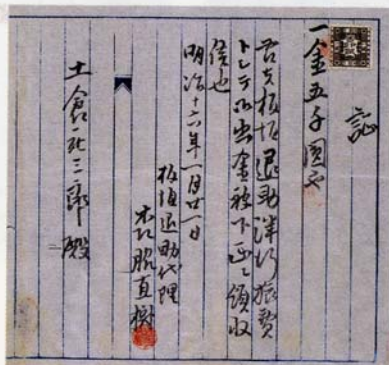 証
一金五千圓也
右者板垣退助洋行旅費
トシテ御出金被下正ニ領収
候也
明治十六年一月廿一日
板垣退助代理
脇直樹
土倉庄三郎殿